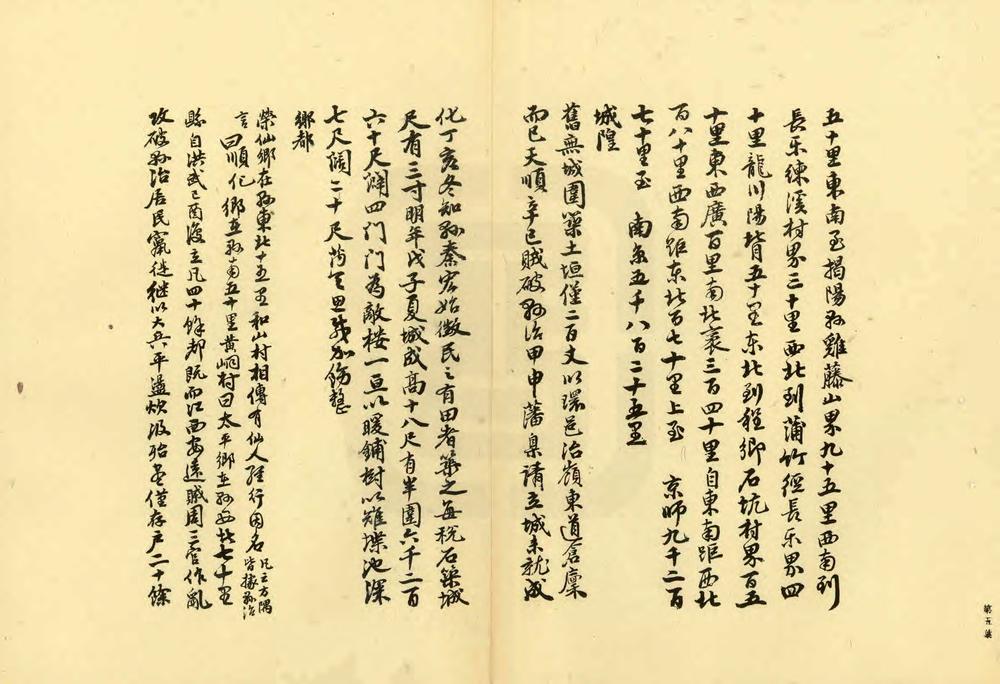 五十里東南至揭陽縣雞藤山界九十五里西南到
長乐練溪村界三十里西北到蒲竹徑長乐界四
十里龍川陽背五十里东北到程鄉石坑村界百五
十里東西廣百里南北袤三百四十里自東南距西北
百八十里西南距东北百七十里上至 京師九千二百
七十里至 南京五千八百二十五里
城隍
舊無城圍築土垣僅二百丈以環邑治嶺東道倉廩
而已天順辛巳賊破縣治甲申藩臬請立城未就成
化丁亥冬知縣秦宏始徵民之有田者築之每稅石築城
尺有三寸明年戊子夏城成高十八尺有半圍六千二百
六十尺闢四门门為敵楼一亘以暖鋪樹以雉堞池深
七尺濶二十尺
鄉都
榮仙鄉在縣東北十五里和山村相傳有仙人經行因名凡立方隅皆據縣治
言曰順化鄉在縣南五十里黄峒村曰太平鄉在縣西北七十里
縣自洪武己酉復立凡四十餘都既而江西安遠賊周三官作亂
攻破縣治居民竄徙継以大兵平盪炊汲殆盡僅存户二十餘
第五葉